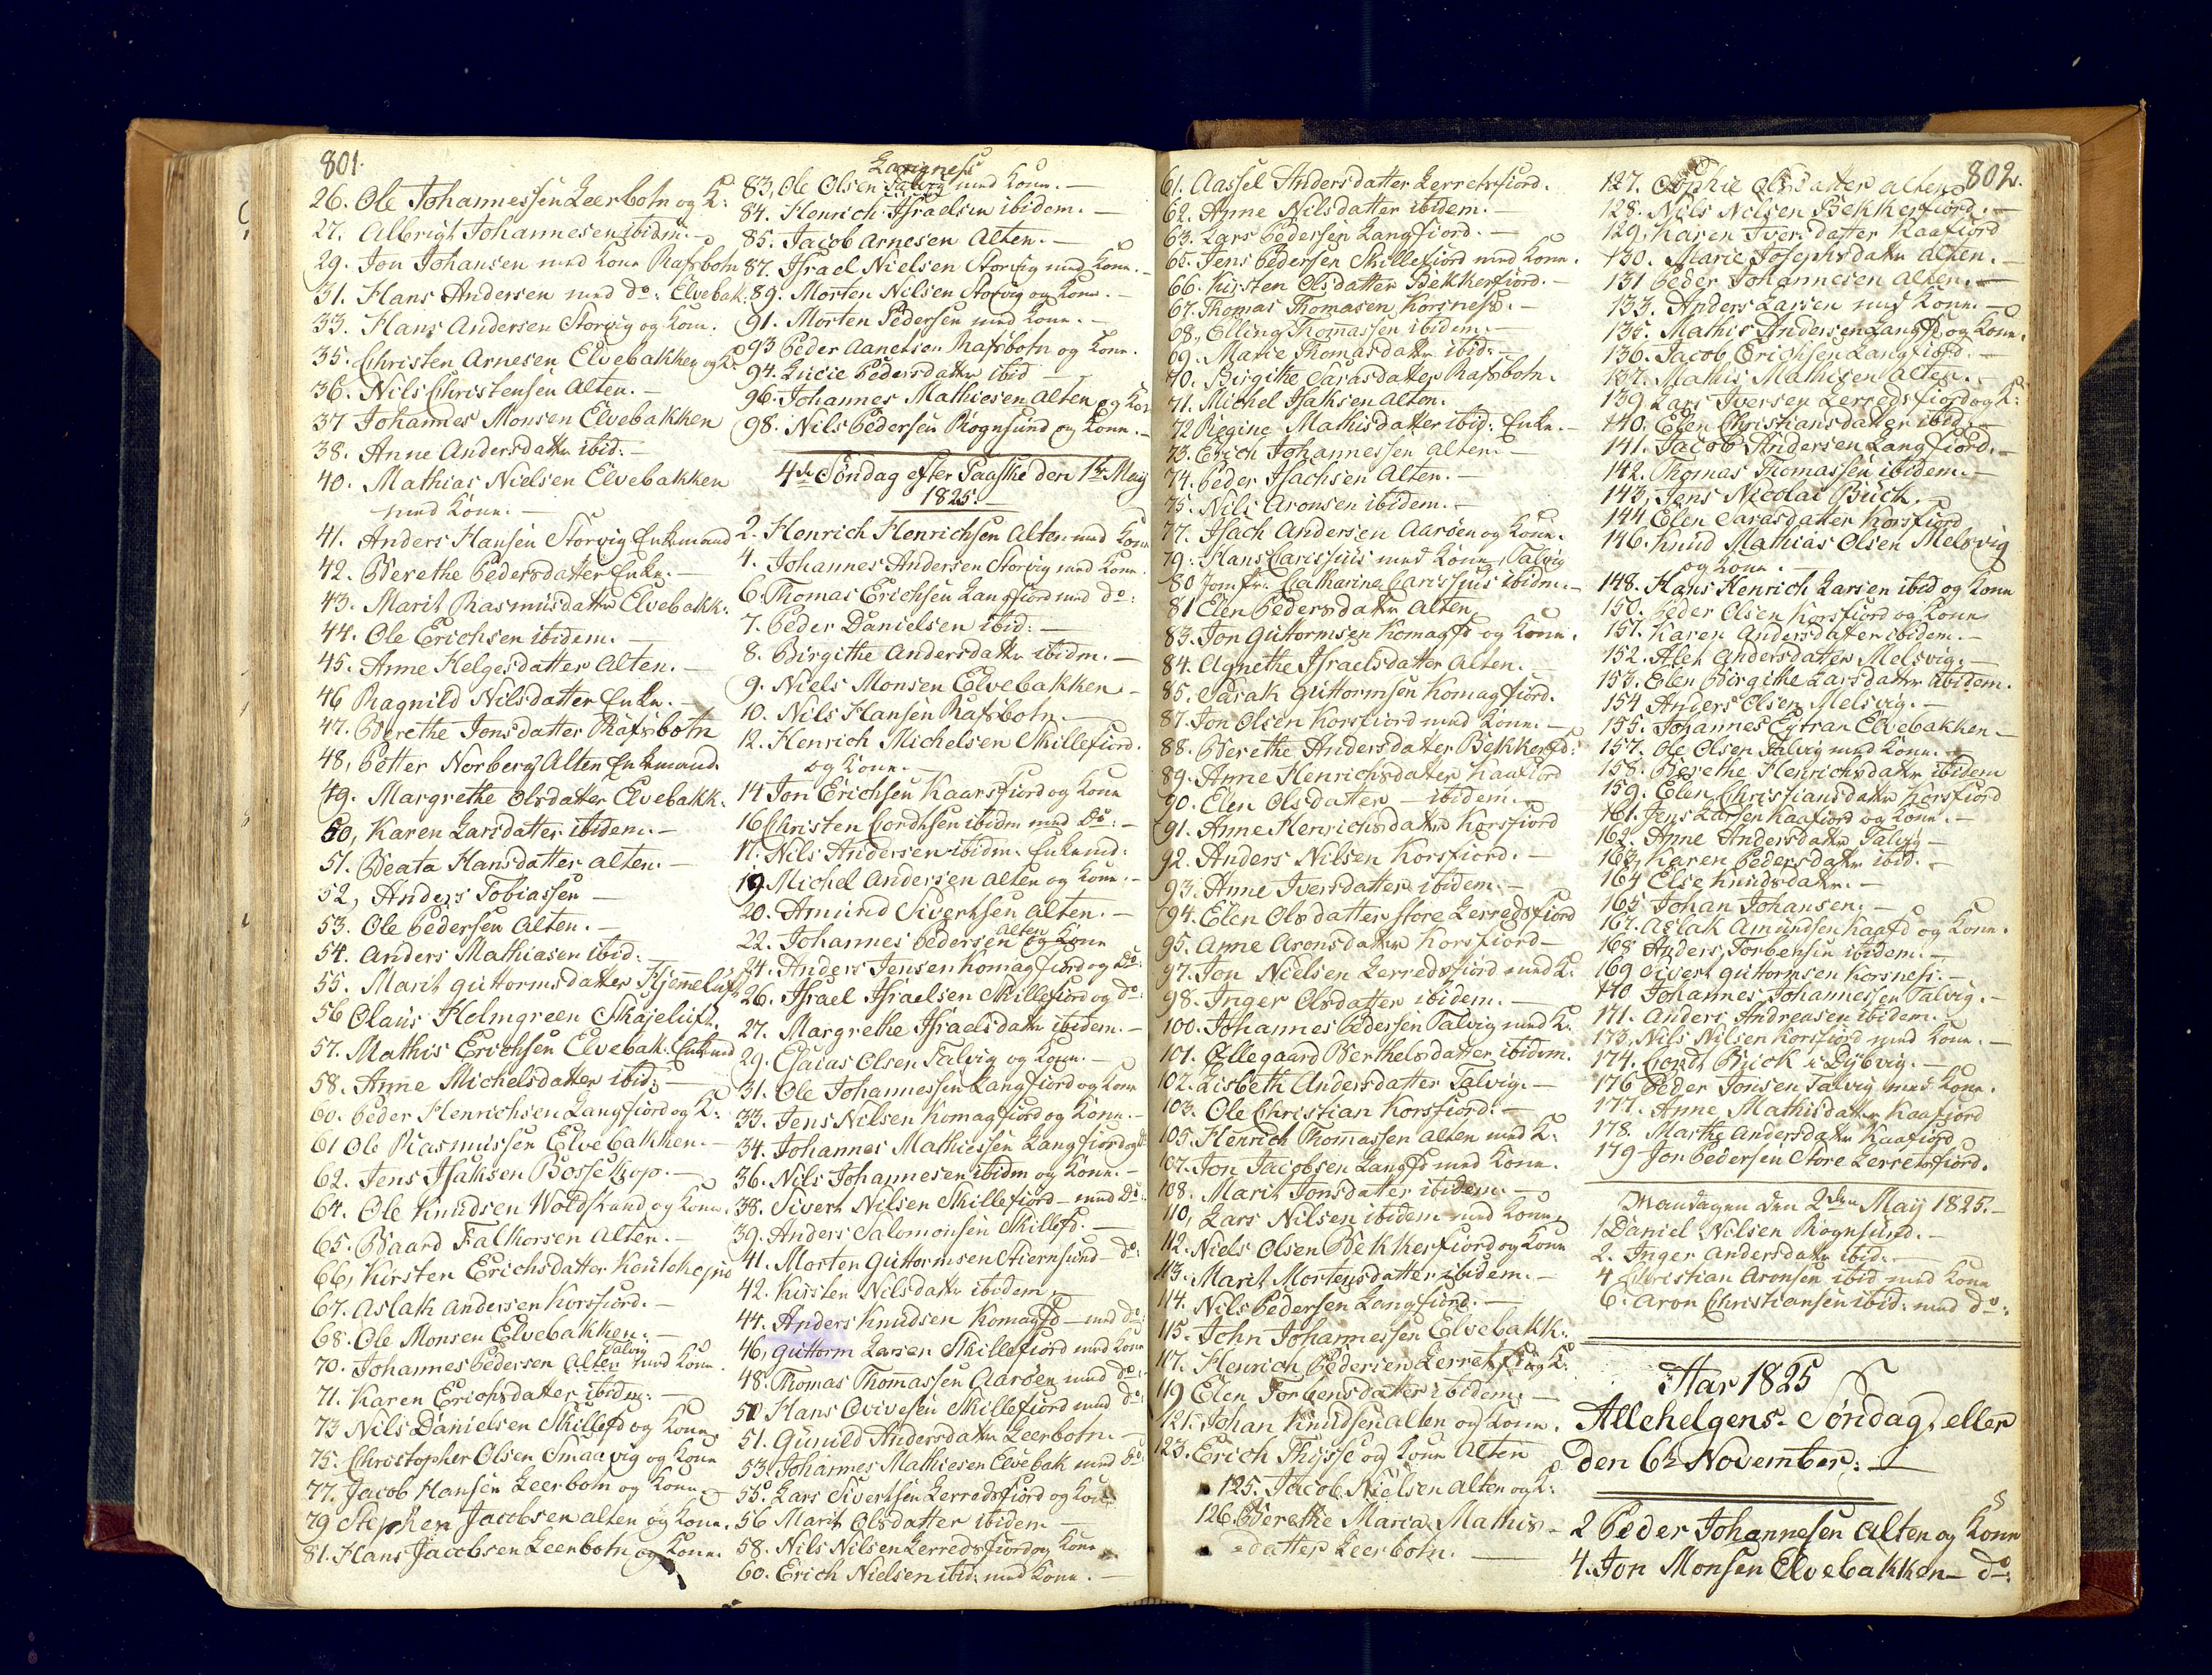 801.
26. Ole Johannessen Leerbotn og K:
27. Albrigt Johannesen ibidm: —
29. Jon Johansen med Kone Rafsbotn
31. Hans Andersen med do: Elvebak:
33. Hans Andersen Storvig og Kone.
35. Christen Arnesen Elvebakken og K:
36. Nils Christensen Alten. —
37 Johannes Monsen Elvebakken
38. Anne Andersdattr ibid: —
40. Mathias Nielsen Elvebakken
med Kone. —
41. Anders Hansen Storvig Enkemand
42. Berethe Pedersdatter Enke. —
43. Marit Rasmusdattr Elvebakk:
44. Ole Erichsen ibidem. —
45. Anne Helgesdatter Alten. —
46 Ragnild Nilsdatter Enke. —
47. Berethe Jonsdatter Rafsbotn
48, Petter Norberg Alten Enkemand.
49. Margrethe Olsdatter Elvebakk:
50, Karen Larsdatter ibidem. —
51. Beata Hansdatter Alten. —
52, Anders Tobiassen —
53. Ole Pedersen Alten. —
54. Anders Mathiasen ibid: —
55. Marit Guttormsdatter Hjemmeluft
56 Olaus Holmgreen Skajeluft.
57. Mathis Erichsen Elvebak: Enkemd
58. Anne Michelsdatter ibid: —
60. Peder Henrichsen Langfiord og K:
61 Ole Rasmussen Elvebakken. —
62. Jens Isaksen Bossekop. —
64. Ole Knudsen Woldstrand og Kone.
65. Baard Falkorsen Alten. —
66, Kirsten Erichsdatter Koutokejno
67. Aslak Andersen Korsfiord. —
68. Ole Monsen Elvebakken. —
Talvig
70. Johannes Pedersen Alten med Kone.
71. Karen Erichsdatter ibidm: —
73 Nils Danielsen Skillefd og Kone.
75. Christopher Olsen Smaavig og Kone
77. Jacob Hansen Leerbotn og Kone. —
79 Stephen Jacobsen Alten og Kone.
81. Hans Jacobsen Leerbotn og Kone.
Langnes
83, Ole Olsen Talvig med Kone. —
84. Henrich Israelsen ibidem. —
85. Jacob Arnesen Alten. —
87. Israel Nielsen Storvig med Kone. —
89. Morten Nilsen Storvig og Kone. —
91. Morten Pedersen med Kone. —
93 Peder Aanetsen Rafsbotn og Kone.
94. Lucie Pedersdattr ibid —
96. Johannes Mathiesen Alten og Kone
98. Nils Pedersen Rognsund og Kone. —
4de Søndag efter Paaske den 1te Maij
1825. —
2. Henrich Henrichsen Alten med Kone
4. Johannes Andersen Storvig med Kone.
6. Thomas Erichsen Langfiord med do:
7. Peder Danielsen ibid: —
8. Birgithe Andersdattr ibidm. —
9. Niels Monsen Elvebakken —
10. Nils Hansen Rafsbotn. —
12. Henrich Michelsen Skillefiord.
og Kone. —
14 Jon Erichsen Kaarsfiord og Kone
16 Christen Cordtsen ibidm med do: —
17. Nils Andersen ibidm. Enkemd:
19 Michel Andersen Alten og Kone. —
20. Amund Sivertsen Alten. —
Alten
22. Johannes Pedersen og Kone
24. Anders Jensen Komagfiord og do:
26. Israel Israelsen Skillefiord og do:
27. Margrethe Israelsdattr ibidem. —
29. Esaias Olsen Talvig og Kone. —
31. Ole Johannessen Langfiord og Kone
33. Jens Nilsen Komagfiord og Kone. —
34. Johannes Mathiessen Langfiord og do
36. Nils Johannesen ibidm og Kone. —
38. Sivert Nilsen Skillefiord — med do:
39. Anders Salomonsen Skillefd. —
41. Morten Guttormsen Stiernsund — do:
42. Kirsten Nilsdattr ibidem, —
44. Anders Knudsen Komagfd — med do:
46, Guttorm Larsen Skillefiord med Kone
48. Thomas Thomassen Aarøen med do:
50 Hans Qvivesen Skillefiord med do:
51. Gunild Andersdattr Leerbotn. —
53. Johannes Mathiesen Elvebak med do:
55. Lars Sivertsen Lerredsfiord og Kone
56 Marit Olsdatter ibidem —
58. Nils Nilsen Lerredsfiord og Kone
60. Erich Nielsen ibid: med Kone. —
61. Aassel Andersdatter Lerretsfiord.
62. Anne Nilsdatter ibidem. —
63. Lars Pedersen Langfiord. —
65. Jens Pedersen Skillefiord med Kone.
66. Kirsten Olsdatter Bekkerfiord. —
67. Thomas Thomasen Korsness. —
68, Elling Thomassen ibidem. —
69. Marie Thomasdattr ibid: —
70. Birgithe Sarasdatter Rafsbotn.
71. Michel Isaksen Alten.
72 Regine Mathisdatter ibid: Enke. —
73. Erich Johannessen Alten. —
74. Peder Isachsen Alten. —
75. Nils Aronsen ibidem. —
77. Isach Andersen Aarøen og Kone.
79. Hans Carissius med Kone, Talvig
80 Jomfr: Catharine Carissius ibidm. —
81 Elen Pedersdattr Alten,
83. Jon Guttormsen Komagfd og Kone.
84. Agnethe Israelsdatter Alten. —
85. Sarak Guttormsen Komagfiord.
87. Jon Olsen Korsfiord med Kone. —
88. Berethe Andersdatter Bekkerfd:
89. Anne Henrichsdatter Kaafiord
90. Elen Olsdatter — ibidem.
91. Anne Henrichsdattr Korsfiord
92. Anders Nilsen Korsfiord. —
93. Anne Iversdatter ibidem. —
94. Elen Olsdatter store Lerredsfiord
95. Anne Aronsdattr Korsfiord —
97. Jon Nielsen Lerredsfiord med K:
98. Inger Olsdatter ibidem. —
100. Johannes Pedersen Talvig med K:
101. Ellegaard Berthelsdatter ibidem.
102. Lisbeth Andersdatter Talvig. —
103. Ole Christian Korsfiord. —
105. Henrich Thomassen Alten med K:
107. Jon Jacobsen Langfd med Kone.
108. Marit Jonsdatter ibidem. —
110, Lars Nilsen ibidem med Kone,
112. Niels Olsen Bekkerfiord og Kone
113. Marit Mortensdatter ibidem. —
114. Nils Pedersen Langfiord. —
115. John Johannessen Elvebakk:
117. Henrich Pedersen Lerretsfd og K:
119 Elen Torbensdatter ibidem. —
121. Johan Knudsen Alten og Kone.
123. Erich Thysse og Kone Alten
125. Jacob Nielsen Alten og K:
126. Berethe Maria Mathis-
-datter Leerbotn. —
802.
127. Sophie Olsdatter Alten
128. Nils Nilsen Bekkerfiord. —
129, Karen Iversdatter Kaafiord
130. Marie Josephsdattr Alten. —
131 Peder Johannesen Alten. —
133. Anders Larsen med Kone. —
135. Mathis Andersen Langfd og Kone.
136. Jacob Erichsen Langfiord. —
137. Mathis Mathisen Alten. —
139 Lars Iversen Lerredsfiord og K:
140. Elen Christiansdatter ibid: —
141. Jacob Andersen Langfiord. —
142. Thomas Thomassen ibidem. —
143, Jens Nicolai Buck. —
144 Elen Sarasdatter Korsfiord
146. Knud Mathias Olsen Melsvig
og Kone. —
148. Hans Henrich Larsen ibid og Kone
150. Peder Olsen Korsfiord og Kone
151. Karen Andersdatter ibidem. —
152. Alet Andersdatter Melsvig. —
153. Elen Birgithe Larsdattr ibidem.
154 Anders Olsen Melsvig. —
155. Johannes Eytran Elvebakken —
157. Ole Olsen Talvig med Kone. —
158. Berethe Henrichsdattr ibidem
159. Elen Christiansdattr Korsfiord
161. Jens Larsen Kaafiord og Kone. —
162. Anne Andersdattr Talvig —
163, Karen Pedersdattr ibid. —
164 Else Knudsdattr. —
165 Johan Johansen. —
167. Aslak Amundsen Kaafd og Kone.
168 Anders Torbensen ibidem. —
169 Sivert Guttormsen Korsness. —
170 Johannes Johannessen Talvig. —
171. Anders Andreasen ibidem. —
173. Nils Nilsen Korsfiord med Kone. —
174. Cordt Buck i Dybvig. —
176 Peder Jonsen Talvig med Kone.
177. Anne Mathisdattr Kaafiord
178. Marthe Andersdattr Kaafiord
179 Jon Pedersen Store Lerretsfiord.
Mandagen den 2den Maij 1825. —
1 Daniel Nilsen Rognsund. —
2. Inger Andersdattr ibid. —
4 Christian Aronsen ibid med Kone
6. Aron Christiansen ibid: med do:
Aar 1825
Allehelgens-Søndag, eller
den 6te November: —
2 Peder Johannesen Alten og Kone
4. Jon Monsen Elvebakken — do: